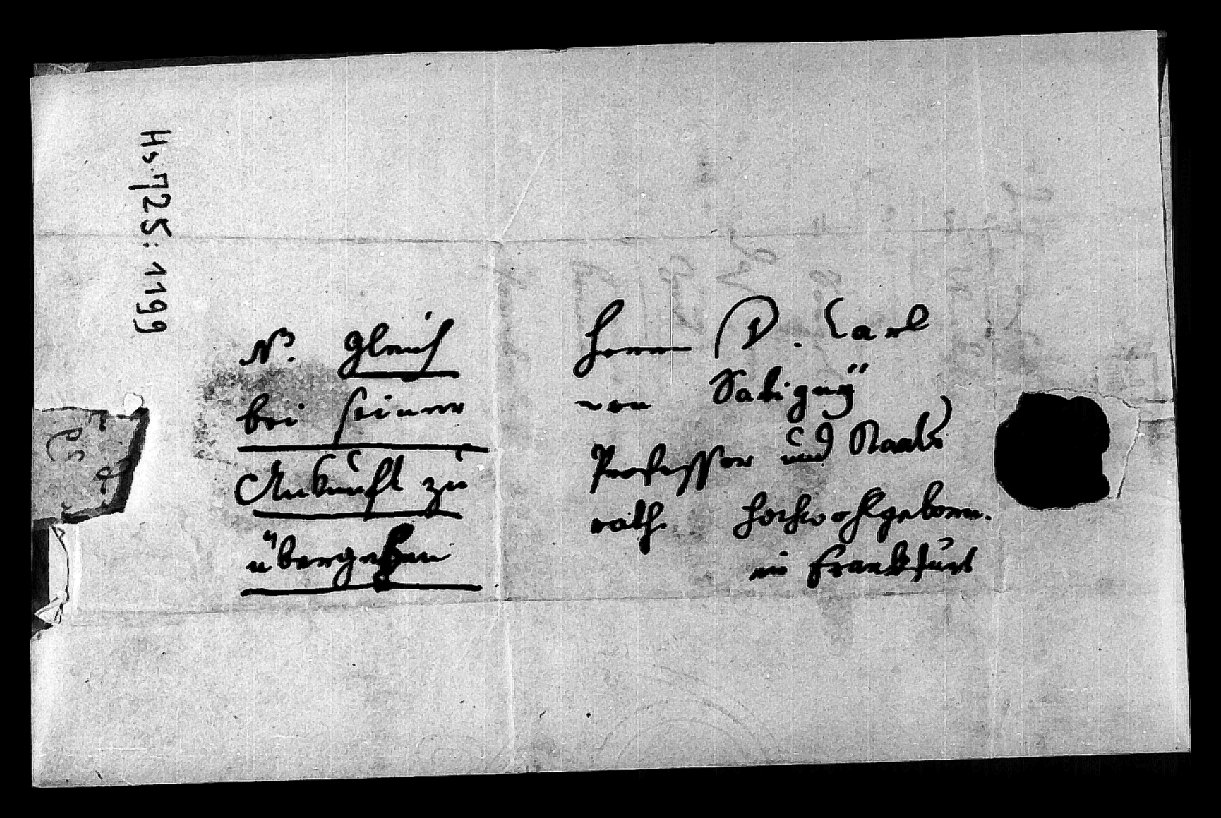 Hs. 725: 1199
N. gleich
bei seiner
Ankunft zu
übergeben
Herrn D. Carl
von Savigny
Professor und Staats
rath Hochwohlgeborn.
in Frankfurt